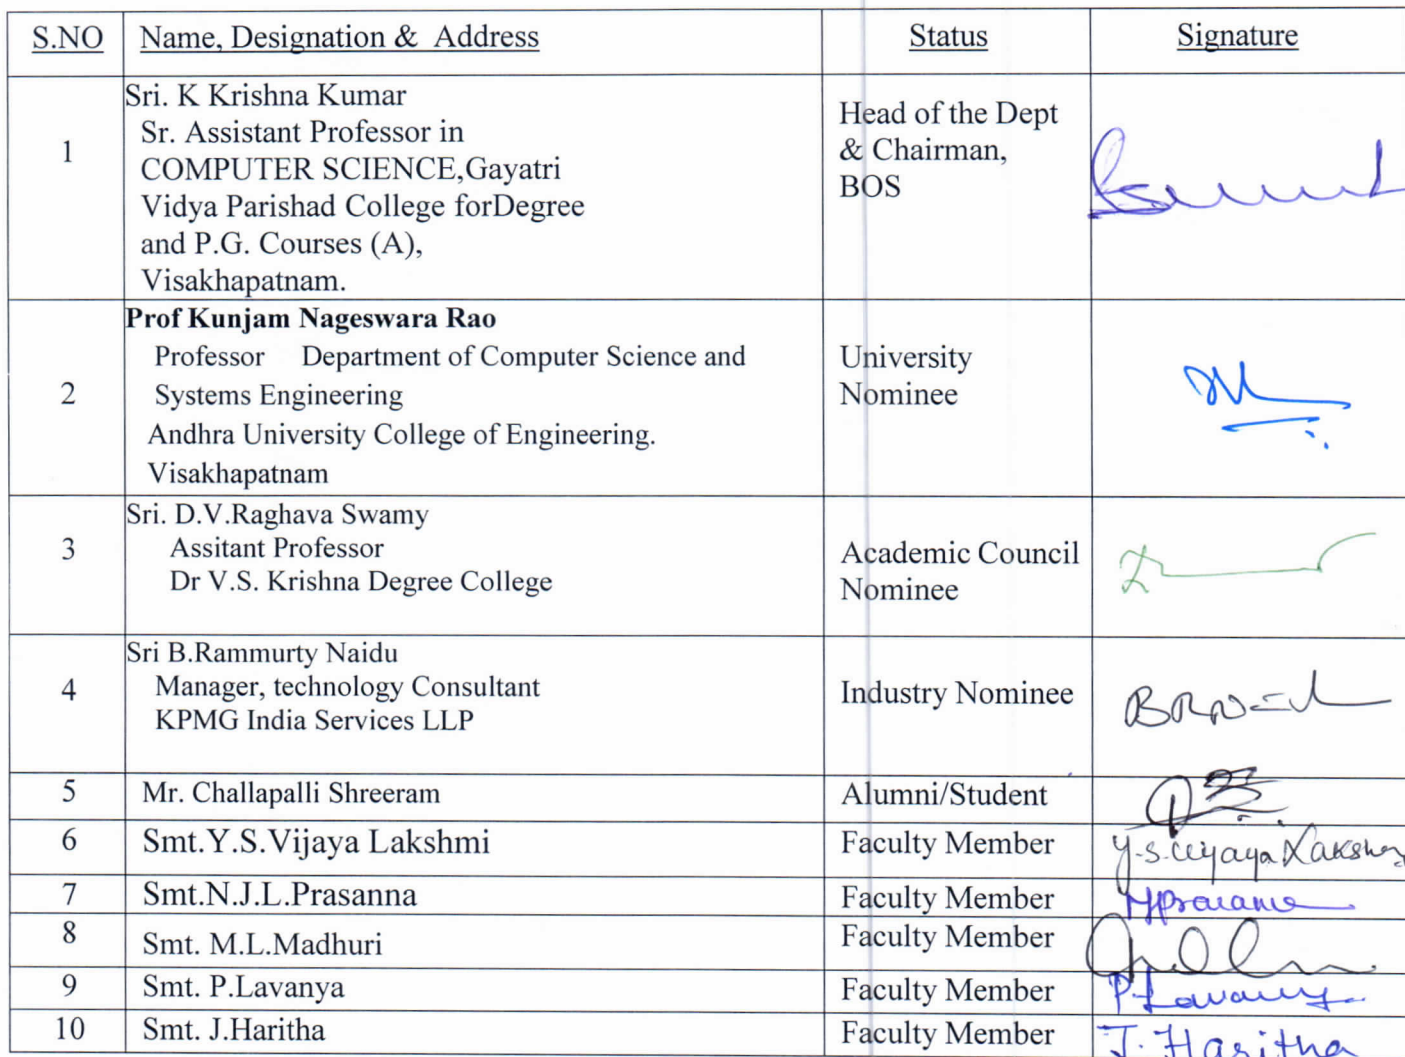 S.NO Name, Designation & Address Status Signature
1
Sri. K Krishna Kumar
Sr. Assistant Professor in
COMPUTER SCIENCE,Gayatri
Vidya Parishad College forDegree
and P.G. Courses (A),
Visakhapatnam.
Head of the Dept
& Chairman,
BOS
2
Prof Kunjam Nageswara Rao
Professor Department of Computer Science and
Systems Engineering
Andhra University College of Engineering.
Visakhapatnam
University
Nominee
3
Sri. D.V.Raghava Swamy
Assitant Professor
Dr V.S. Krishna Degree College
Academic Council
Nominee
4
Sri B.Rammurty Naidu
Manager, technology Consultant
KPMG India Services LLP
Industry Nominee
5 Mr. Challapalli Shreeram Alumni/Student
6 Smt.Y.S.Vijaya Lakshmi Faculty Member Y.S.Vijaya Lakshmi
7 Smt.N.J.L.Prasanna Faculty Member
8 Smt. M.L.Madhuri Faculty Member
9 Smt. P.Lavanya Faculty Member P.Lavanya
10 Smt. J.Haritha Faculty Member J. Haritha